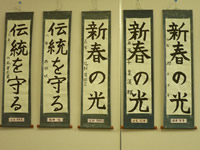 新春の光
新春の光
新春の光
伝統を守る
伝統を守る